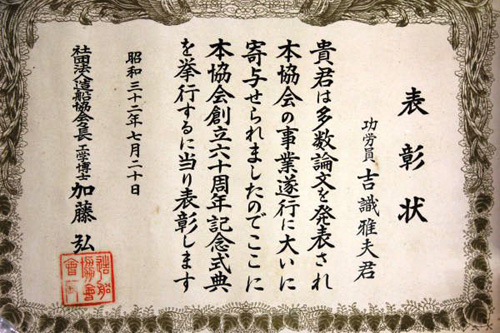 表彰状
功労員 吉識雅夫君
貴君は多数論文を発表され
本協会の事業遂行に大いに
寄与せられましたのでここに
本協会創立六十周年記念式典
を挙行するに当り表彰します
昭和三十二年七月二十日
社団法人造船協会会長 工学博士 加藤弘
造船
協会